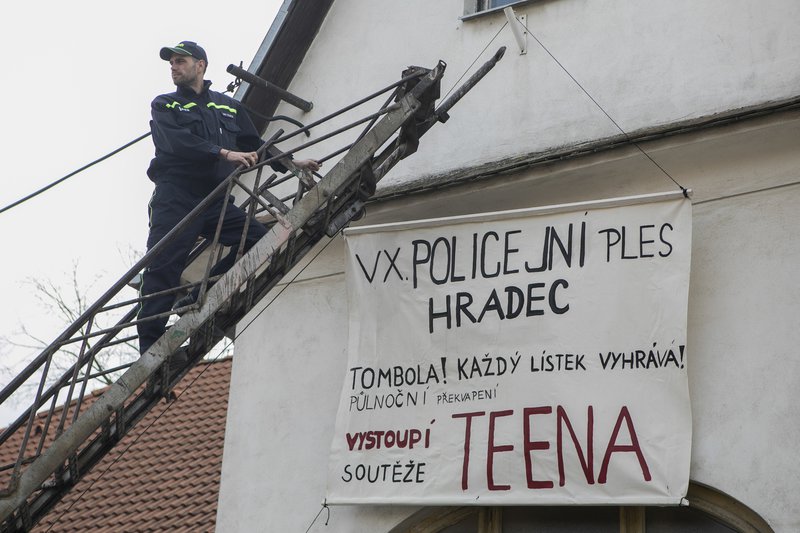 VX. POLICEJNÍ PLES
HRADEC
TOMBOLA! KAŽDÝ LÍSTEK VYHRÁVA!
PŮLNOČNÍ PŘEKVAPENÍ
VYSTOUPÍ TEENA
SOUTĚŽE